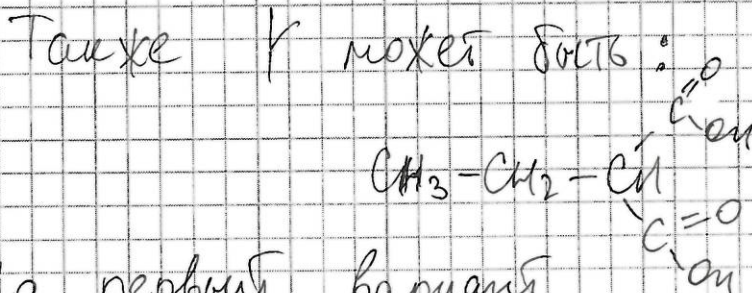 Также Y может быть:
C=O
OH
CH3-CH2-CH
C=O
OH
первый вариант